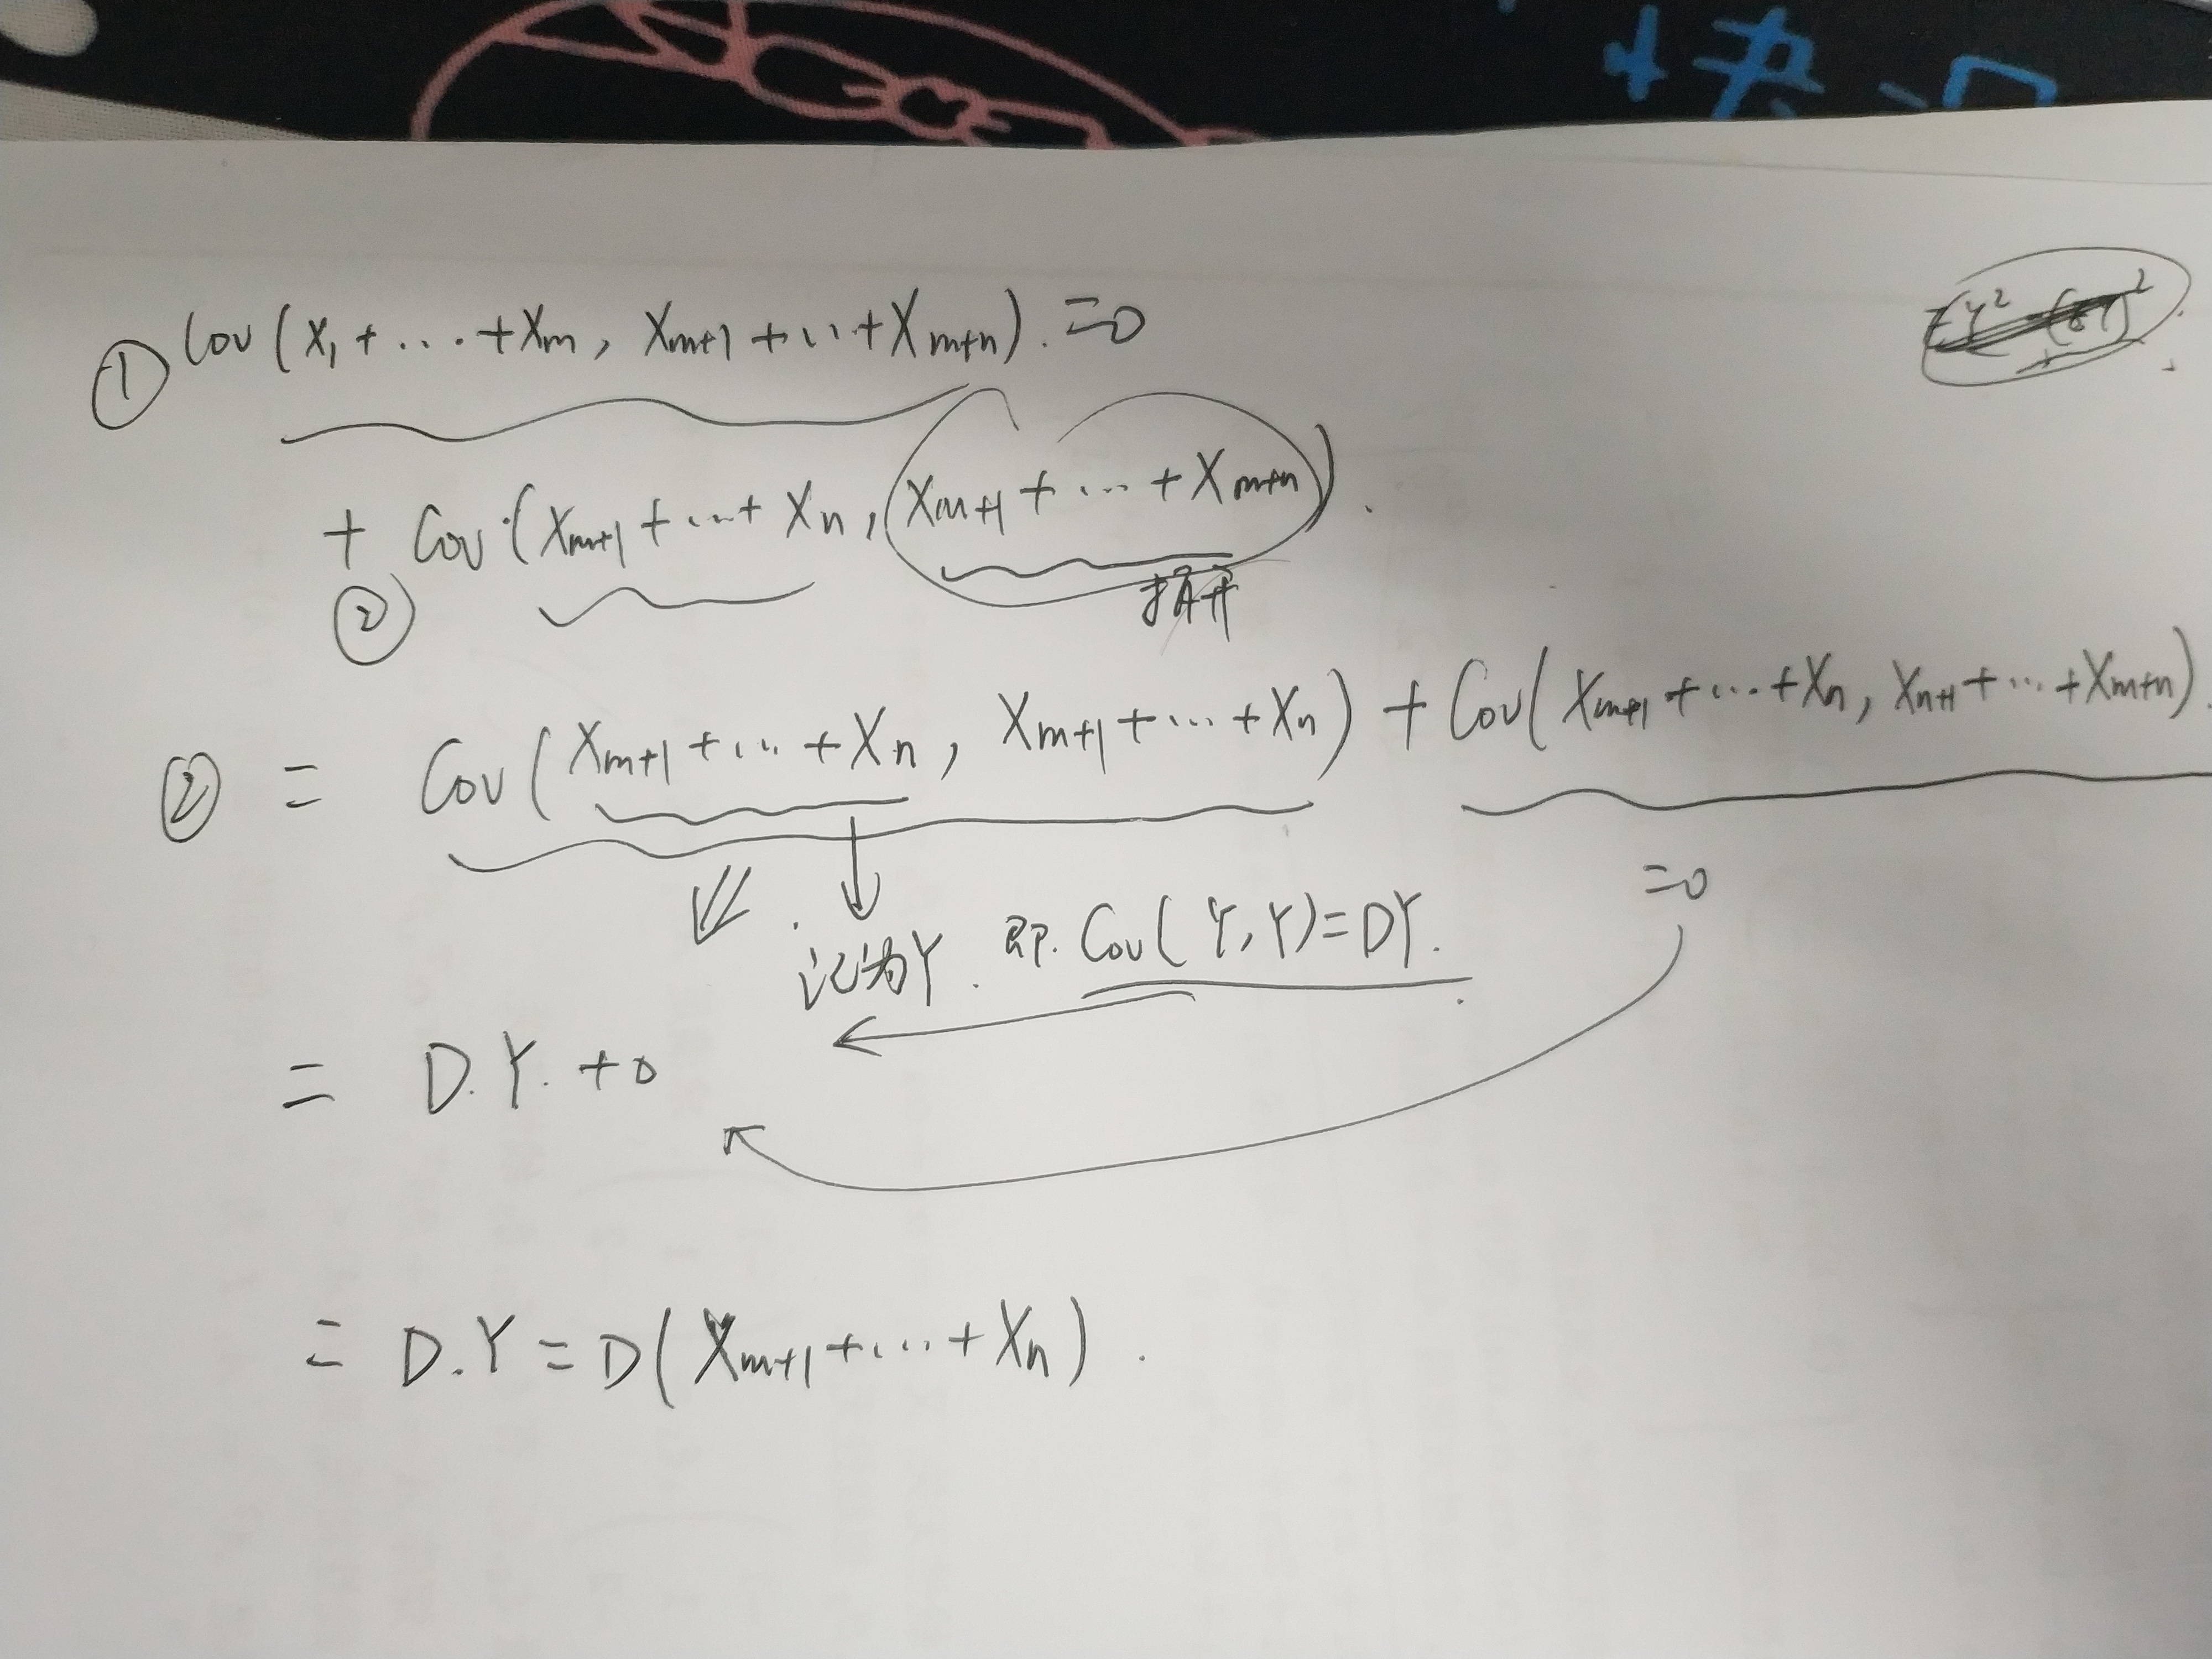 ① Cov(X₁+...+Xₘ, Xₘ₊₁+...+Xₘ₊ₙ).=0
+ Cov(Xₘ₊₁+...+Xₙ, Xₘ₊₁+...+Xₘ₊ₙ).
② 拆开
② = Cov(Xₘ₊₁+...+Xₙ, Xₘ₊₁+...+Xₙ) + Cov(Xₘ₊₁+...+Xₙ, Xₙ₊₁+...+Xₘ₊ₙ).
=0
记为Y. 即. Cov(Y,Y)=DY.
= D.Y. +0
= D.Y = D(Xₘ₊₁+...+Xₙ).